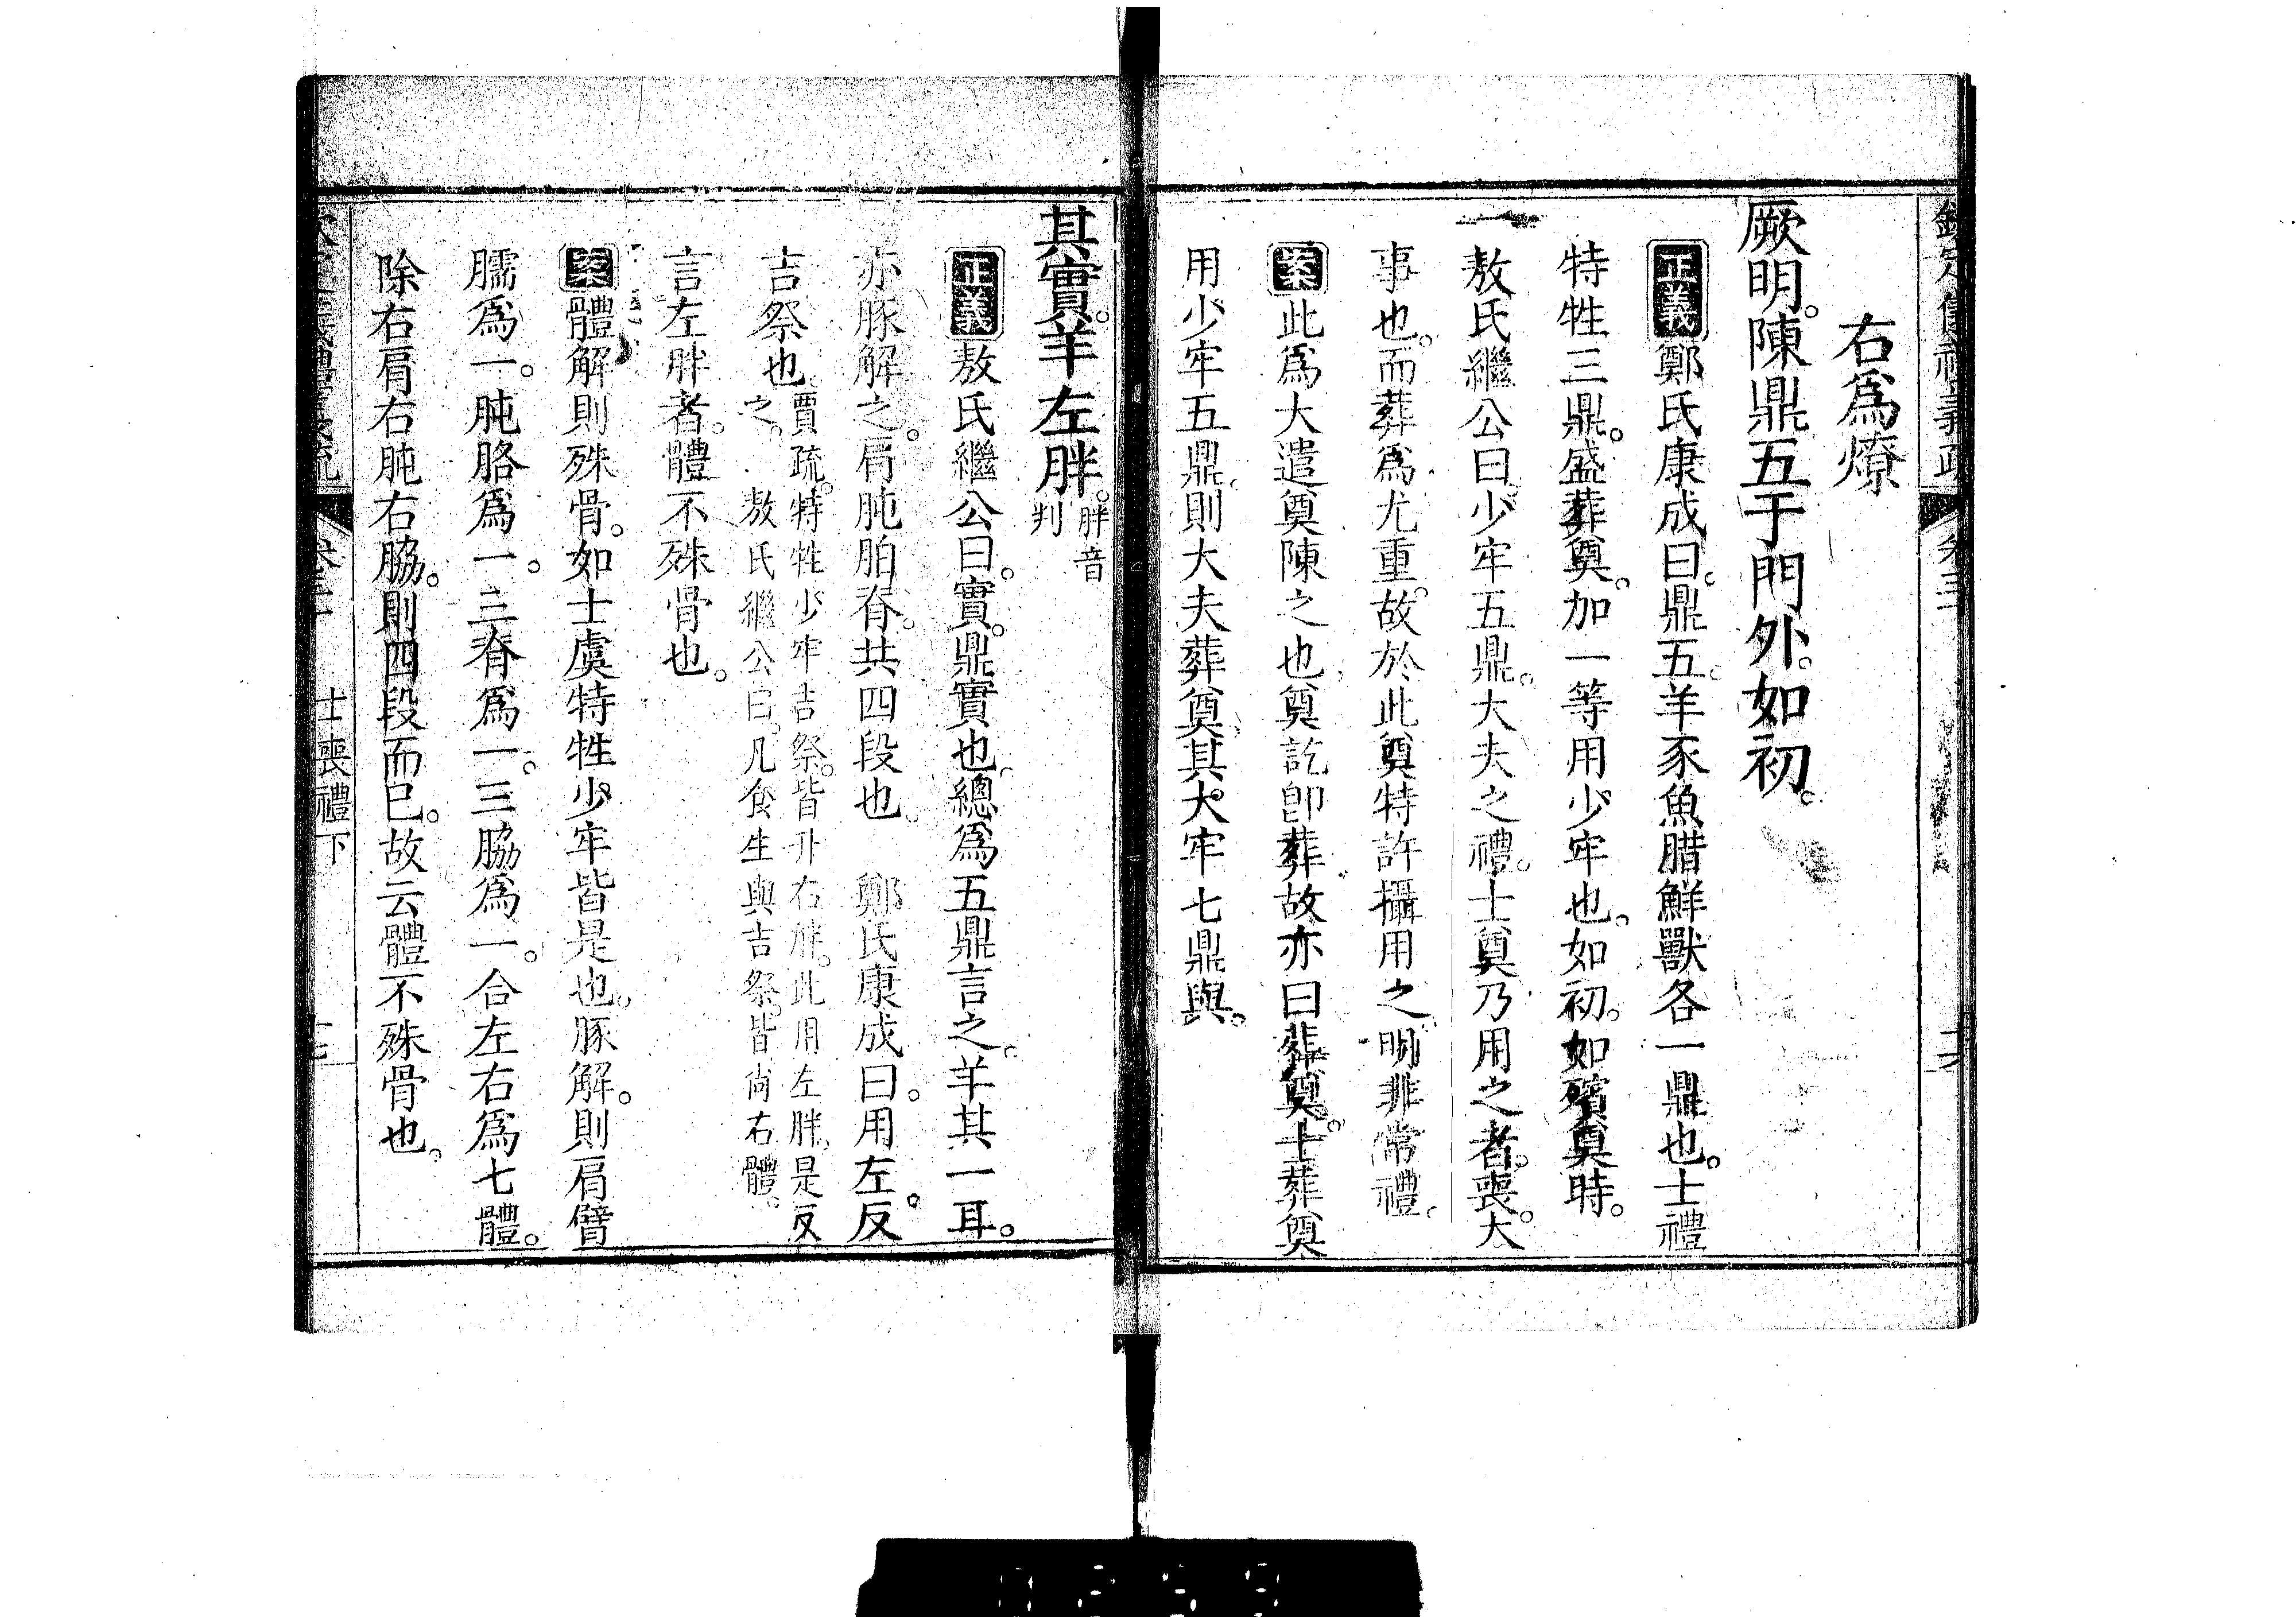 右爲燎
厥明。陳鼎五于門外。如初。
正義鄭氏康成曰。鼎五。羊豕魚腊鮮獸各一鼎也。士禮
特牲三鼎。盛葬奠。加一等用少牢也。如初。如殯奠時。
敖氏繼公曰。少牢五鼎。大夫之禮。士奠乃用之者。喪。大
事也。而葬爲尤重。故於此奠特許攝用之。明非常禮。
案此爲大遣奠陳之也。奠訖卽葬。故亦曰葬奠。士葬奠
用少牢五鼎。則大夫葬奠。其大牢七鼎與。
其實。羊左胖。胖音
判
正義敖氏繼公曰。實。鼎實也。總爲五鼎言之。羊其一耳。
亦豚解之。肩肫胉脊。共四段也。 鄭氏康成曰。用左。反
吉祭也。賈疏。特牲少牢吉祭。皆升右胖。此用左胖。是反
之。 敖氏繼公曰。凡食生與吉祭。皆尚右體。
言左胖者。體不殊骨也。
案體解則殊骨。如士虞特牲少牢皆是也。豚解。則肩臂
臑爲一。肫胳爲一。三脊爲一。三脇爲一。合左右爲七體。
除右肩右肫右脇。則四段而已。故云體不殊骨也。
士喪禮下